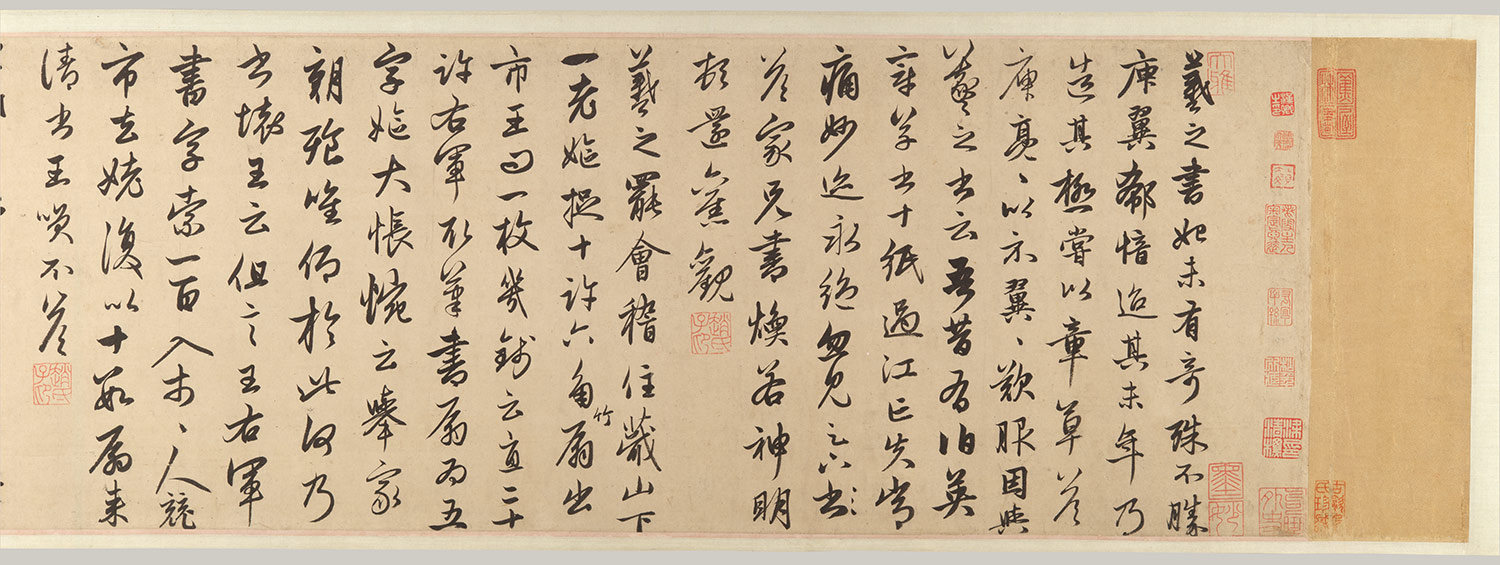 羲之書始未有奇殊不勝
庾翼郗愔迨其末年乃
造其極嘗以章草答
庾亮〻以示翼〻歎服因與
羲之書云吾昔有伯英
章草書十紙過江亡失常
痛妙迹永絶忽見足下書
答家兄書煥若神明
頓還舊觀
趙氏子昂
羲之罷會稽住蕺山下
一老嫗捉十許六角竹扇出
市王問一枚幾錢云直二十
許右軍取筆書扇為五
字嫗大悵惋云舉家
朝飡唯仰於此何乃
書壞王云但言王右軍
書字索一百入市〻人競
市去姥復以十數扇來
請書王笑不答
趙氏子昂